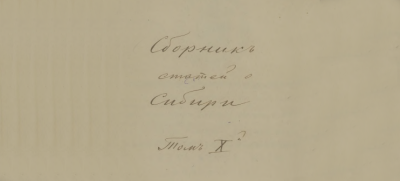 Сборникъ
статей о
Сибири
Томъ X й